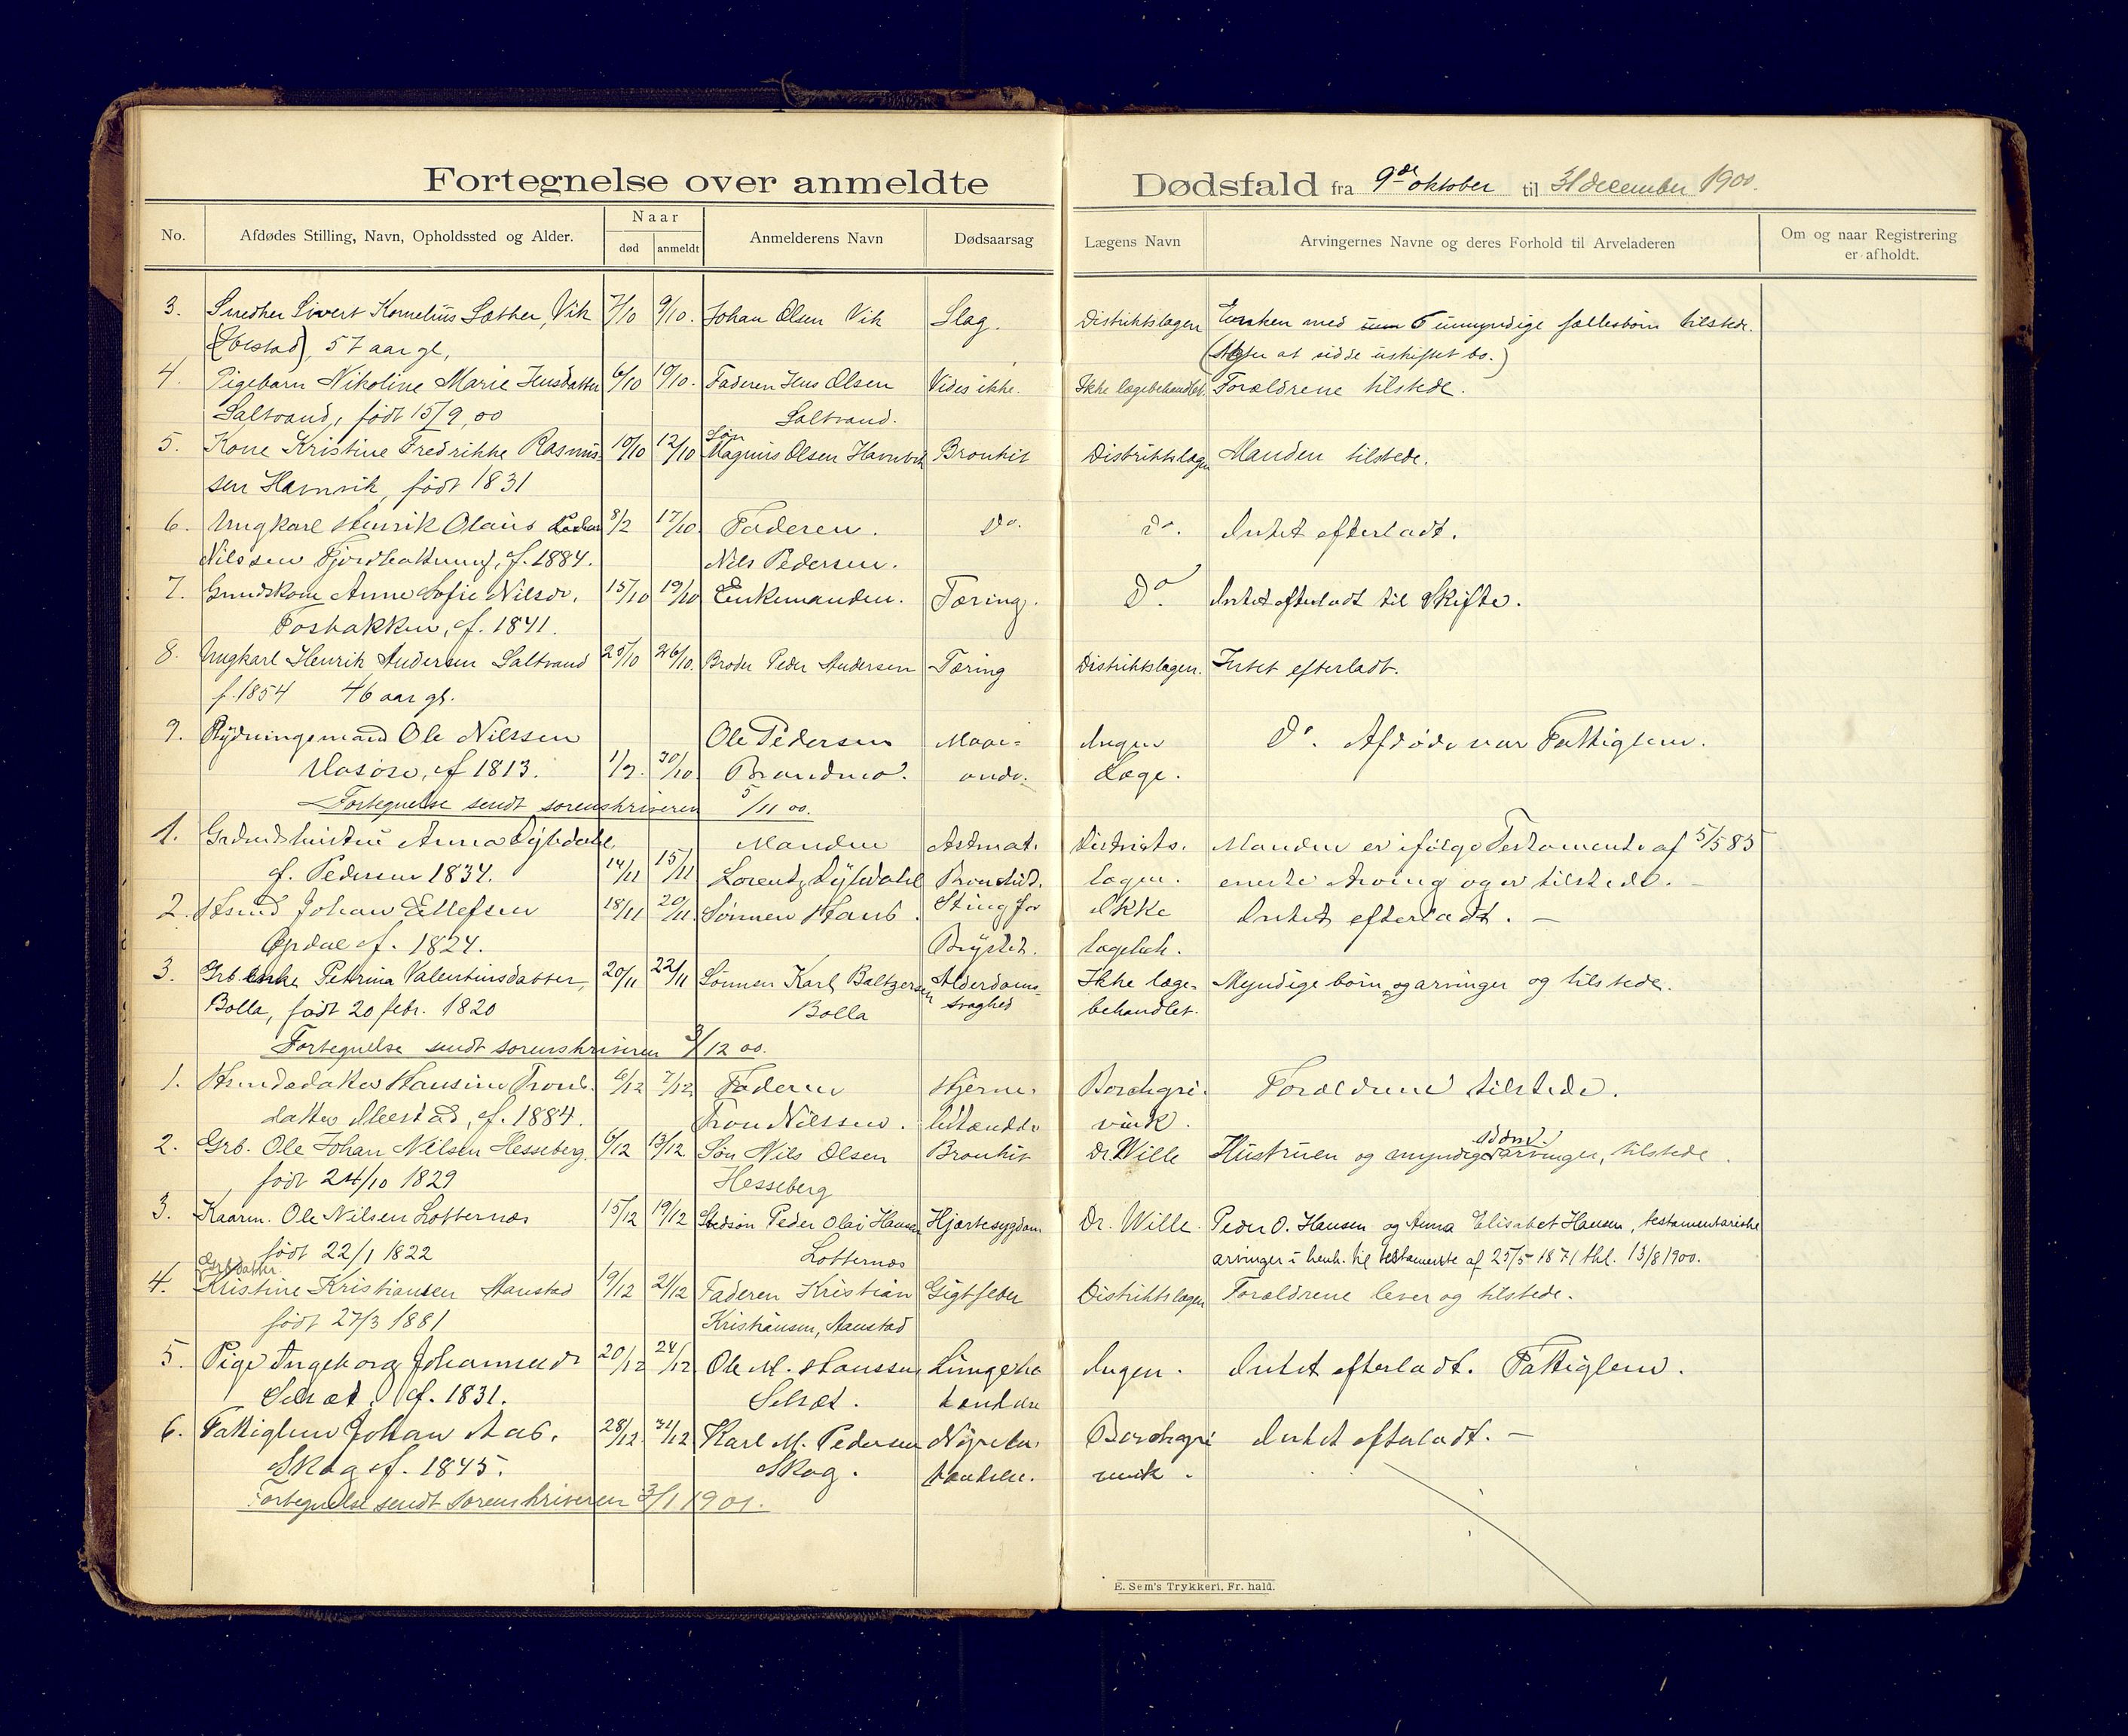 Fortegnelse over anmeldte Dødsfald fra 9de oktober til 31 december 1900.
No. Afdødes Stilling, Navn, Opholdssted og Alder. Naar død anmeldt Anmelderens Navn Dødsaarsag Lægens Navn Arvingernes Navne og deres Forhold til Arveladeren Om og naar Registrering er afholdt.
3. Snedker Sivert Kornelius Sæther, Vik 7/10 9/10. Johan Olsen Vik Slag. Distriktslægen Enken med 5 umyndige fællesbørn tilstede.
(Ibestad), 57 aar gl, ( at sidde i uskiftet bo.)
4. Pigebarn Nikoline Marie Jensdatter 6/10 10/10. Faderen Jens Olsen Vides ikke. Ikke lægebehandlet. Forældrene tilstede.
Saltvand, født 15/9, 00 Saltvand.
5. Kone Kristine Fredrikke Rasmus- 10/10 12/10 Søn Magnus Olsen Havnvik Bronkit Distriktslægen Manden tilstede.
sen Hamnvik, født 1831
6. Ungkarl Henrik Olaus 8/2 17/10. Faderen. Do. do. Intet efterladt.
Nilssen Fjordbotnund, f. 1884. Nils Pedersen.
7. Gmdskone Anne Sofie Nilsdr. 15/10 19/10 Enkemanden. Tæring. Do. Intet efterladt til Skifte.
Fosbakken, f. 1841.
8. Ungkarl Henrik Andersen Saltvand 25/10 26/10. Broder Peder Andersen Tæring Distriktslægen. Intet efterladt.
f. 1854 46 aar gl.
9. Rydningsmand Ole Nilssen Ole Pedersen Mave- Ingen Do. Afdøde var Fattiglem.
f 1813. 1/9. 30/10 Brandmo. onde. Læge.
Fortegnelse sendt sorenskriveren 5/11 00.
1. Grdmdshustru Anna Dybdahl, Manden Astmat. Distrikts- Manden er ifølge Testamente af 5/5 85
f. Pedersen 1834. 14/11 15/11 Lorentz Dybdahl Bronkit. lægen. eneste Arving og er tilstede. –
2. Hsmd Johan Ellefsen 18/11 20/11. Sønnen Hans. Sting for Ikke Intet efterladt. –
Opdal f. 1824. Brystet. lægebeh.
3. Grb. enke Petrina Valentinsdatter, 20/11 22/11 Sønnen Karl Baltzersen Alderdoms- Ikke læge- Myndige børn og arvinger og tilstede.
Bolla, født 20 febr. 1820 Bolla svaghed behandlet.
Fortegnelse sendt sorenskriveren 3/12 00.
1. Hsmdsdatter Hansine Trons- 6/12 7/12 Faderen Hjerne- Borchgre- Forældrene tilstede.
datter f. 1884. Tron Nilssen. betændelse vink.
2. Grb. Ole Johan Nilsen Hesseberg. 6/12 13/12 Søn Nils Olsen Bronkit Dr. Wille Hustruen og myndige arvinger, tilstede.
født 24/10 1829 Hesseberg
3. Kaarm. Ole Nilsen Lotternes 15/12 19/12 Stedsøn Peder Olai Hansen Hjertesygdom Dr. Wille. Peder O. Hansen og Anna Elisabet Hansen, testamentariske
født 22/1 1822 Lotternes arvinger i henh. til testamente af 25/5 1871 thl. 13/8 1900.
4. Grb datter Kristine Kristiansen Aanstad 19/12 21/12 Faderen Kristian Gigtfeber Distriktslægen Forældrene lever og tilstede.
født 27/3 1881 Kristiansen, Aanstad
5. Pige Ingeborg Johannesdr 20/12 24/12 Ole M. Hanssen Lungebe- Ingen. Intet efterladt. Fattiglem.
Selset, f. 1831. Selset. tændelse
6. Fattiglem Johan Aas. 28/12 31/12 Karl M. Pedersen Nyrebe- Borchgre Intet efterladt. –
Skog f. 1845. Skog. tændelse. vink.
Fortegnelse sendt sorenskriveren 3/1 1901.
E. Sem's Trykkeri, Fr. hald.